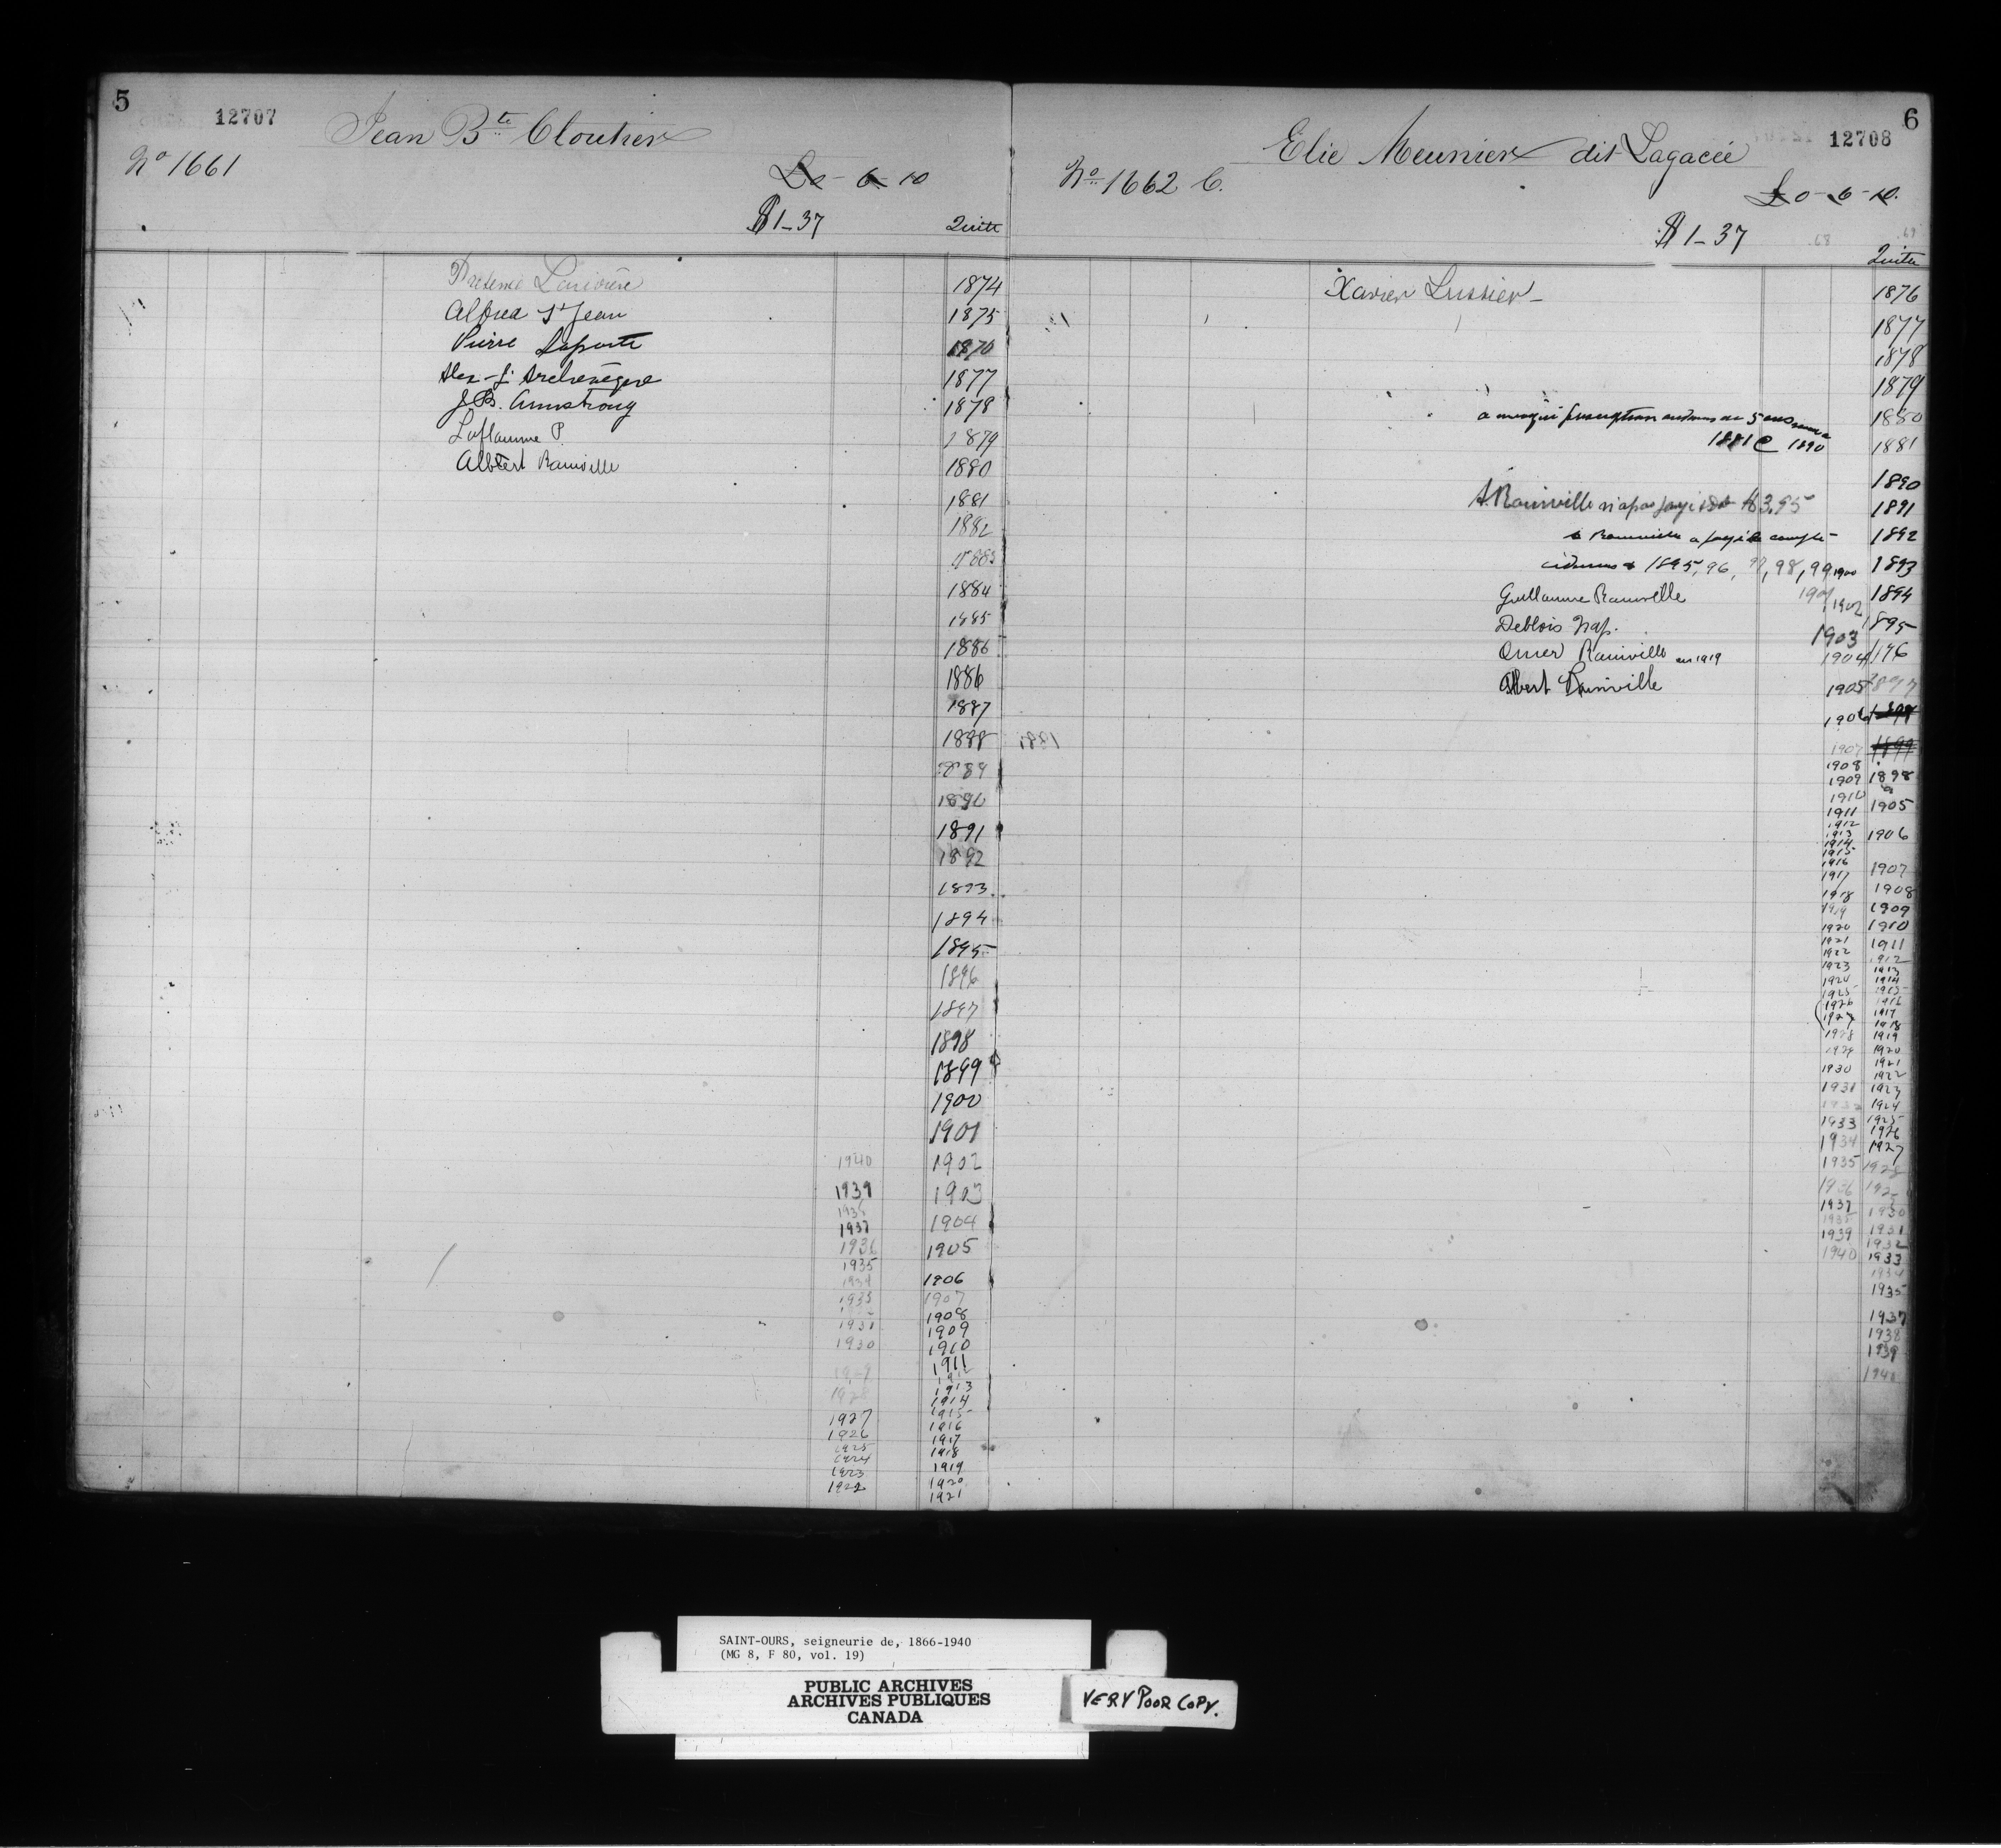 5
12707
Jean Bte Cloutier
No 1661
£0 - 6 - 10
$1-37
Quitte
1874
Alfred St Jean
1875
Pierre Laporte
1876
1877
J. B. Armstrong
1878
Laflamme P.
1879
Albert Rainville
1880
1881
1882
1883
1884
1885
1886
1886
1887
1888
1889
1890
1891
1892
1893
1894
1895
1896
1897
1898
1899
1900
1901
1940 1902
1939 1903
1938
1937 1904
1936 1905
1935
1934 1906
1933 1907
1908
1931 1909
1930 1910
1911
1929 1912
1928 1913
1914
1927 1915
1926 1916
1917
1925 1918
1924
1923 1919
1922 1920
1921
6
12708
Elie Meunier dit Lagacée
No 1662 C.
£0-6-10.
$1-37
Quitte
Xavier Lussier
1876
1877
1878
1879
1880
1881 1890
1881
1890
A. Rainville n'a pas payé $3.95
1891
Rainville a payé
1892
1895, 96, 97, 98, 99, 1900
1893
Guillaume Rainville
1901
1902
1894
Deblois Nap.
1903
1895
Omer Rainville en 1919
1904
196
Albert Rainville
1905
1897
1906
1898
1907
1899
1908
1909 1898
1910 a
1911 1905
1912
1913 1906
1914
1915
1916
1917 1907
1918 1908
1919 1909
1920 1910
1921 1911
1922 1912
1923 1913
1924 1914
1925 1915
1926 1916
1927 1917
1918
1928 1919
1929 1920
1921
1930 1922
1931 1923
1932 1924
1933 1925
1926
1934 1927
1935 1928
1936 1929
1937 1930
1938 1931
1939 1932
1940 1933
1934
1935
1937
1938
1939
1940
SAINT-OURS, seigneurie de, 1866-1940
(MG 8, F 80, vol. 19)
PUBLIC ARCHIVES
ARCHIVES PUBLIQUES
CANADA
VERY POOR COPY.